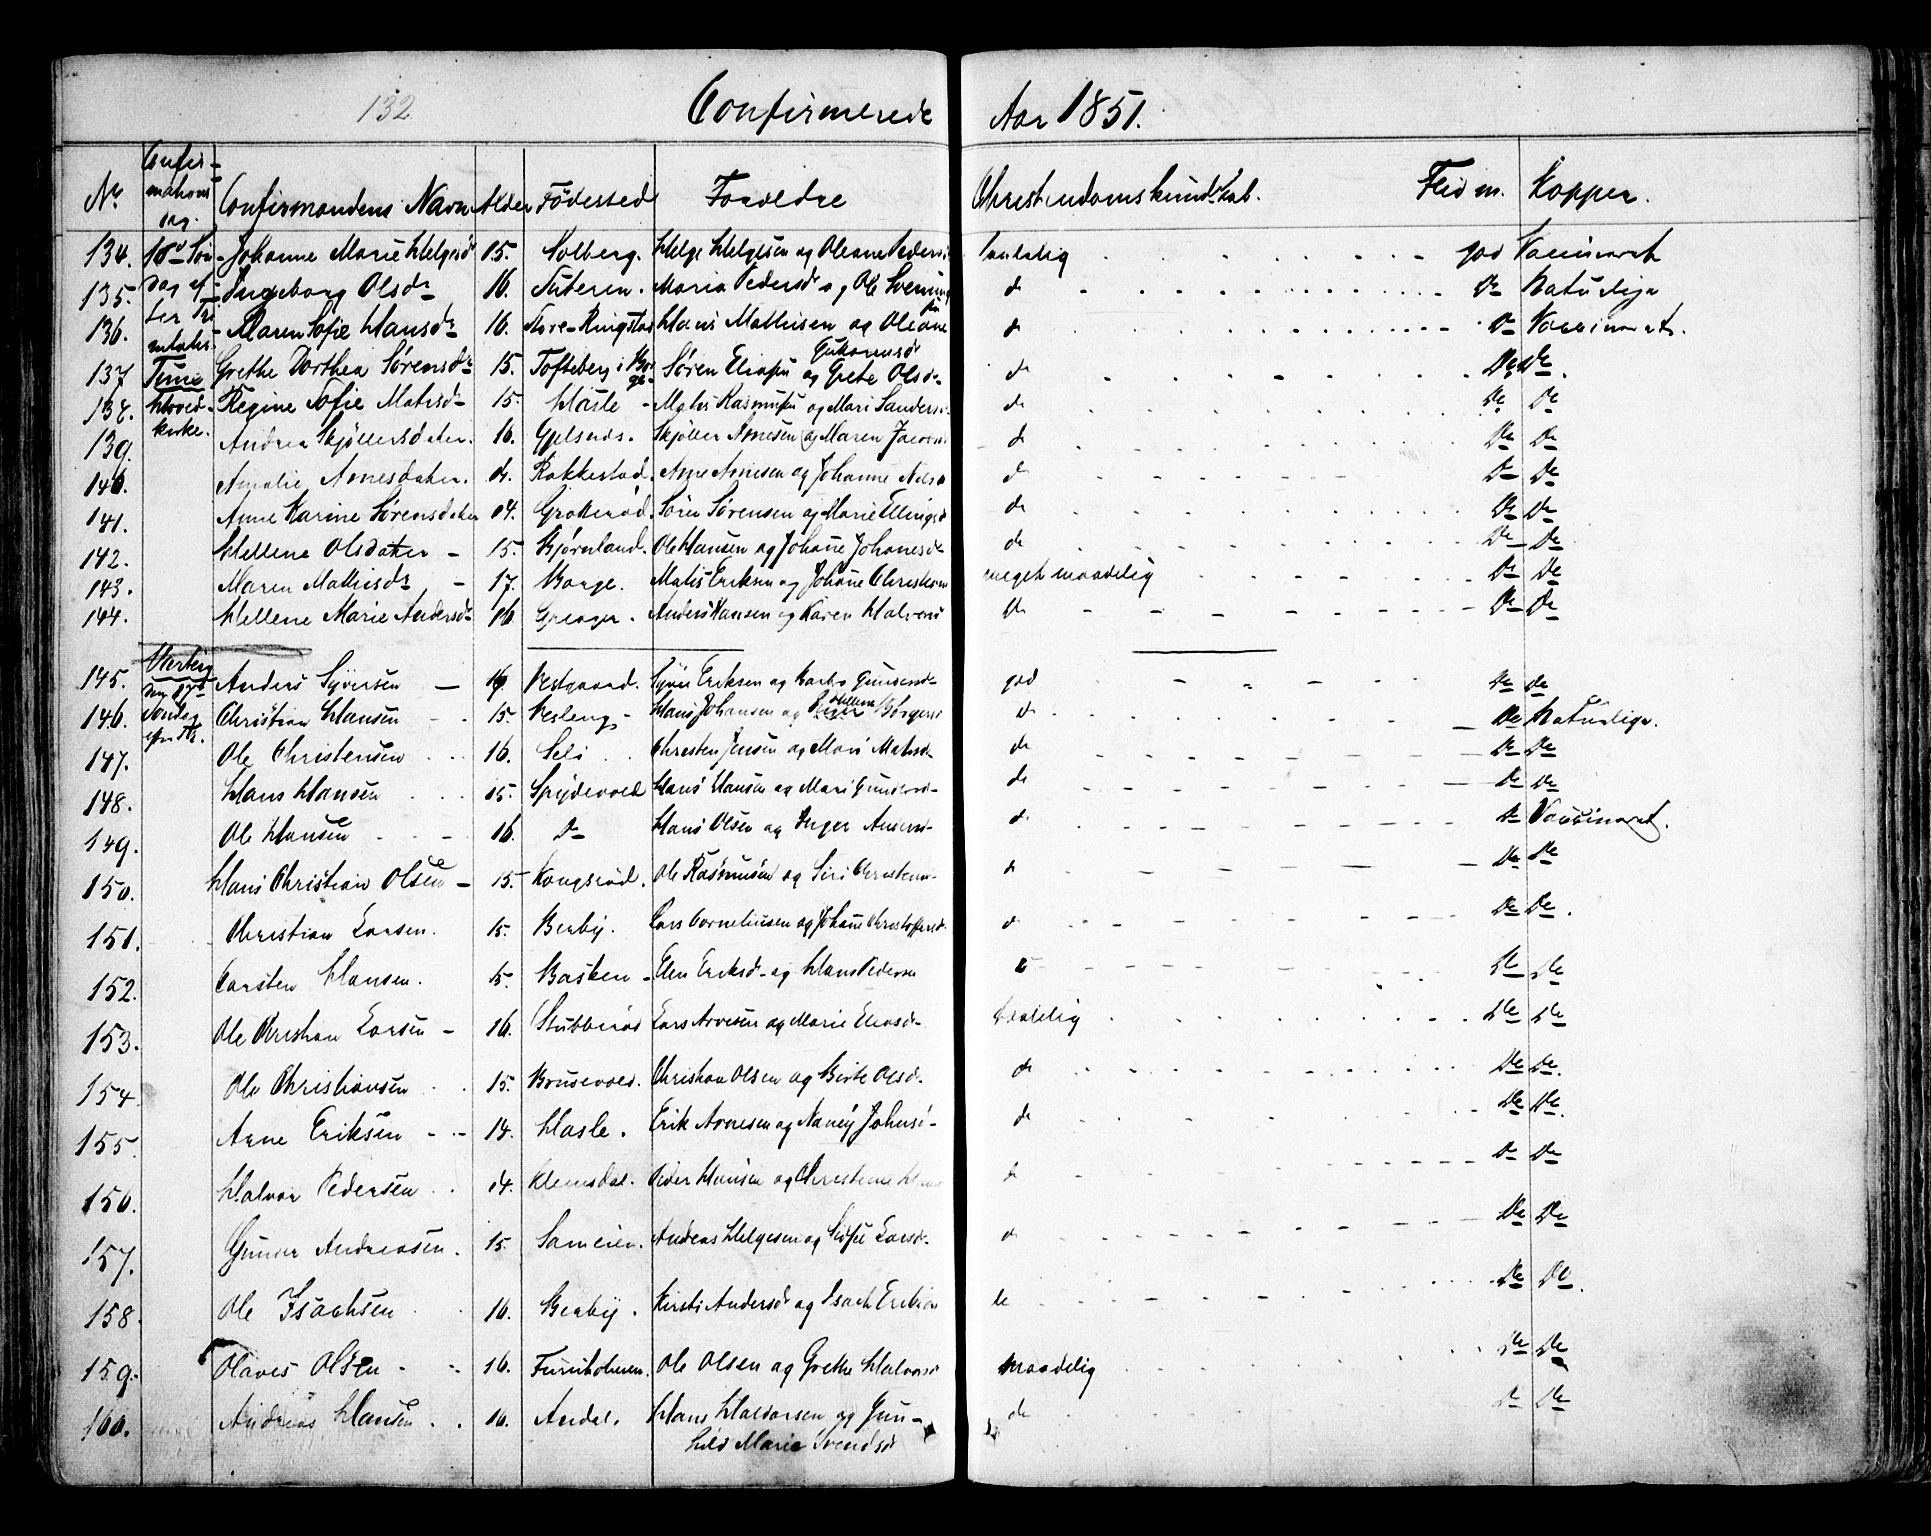 132
Confirmerede Aar 1851.
No. Confirmations dag. Confirmandens Navn Alder Födested Forældre Christendomskundskab. Flid m. Kopper.
134. 10de Søn- Johanne Marie Helgesd 15. Holberg. Helge Helgesen og Oleane Peders taalelig god Vaccineret
135. dag ef- Ingeborg Olsdr 16. Tuteren. Maria Pedersd og Ole Svenning d Do Naturlige
136. ter Tri Maren Sofie Hansdr 16. Nore-Ringstad Hans Mathisen og Oleane Gukormsdr d Do Vaccineret.
137 nitatis Grethe Dorthea Sørensdr 15. Tofteberg i Borge- Søren og Grete Olsdr d Do Do.
138. Hoved- Regine Sofie Matisd 15. Hasle - Matis og Mari Sanders d Do Do
139. kirke. Andrea Skjøllersdater. 16. Skjøller Arnesen og Maren d Do Do
140. Amalie Arnesdater. d. Rakkestad. Arne Arnesen og Johanne Nilsd d Do Do
141. Anne Karine Sørensdater 14. Grotterød. Sören Sörensen og Marie Ellingsd do Do Do
142. Hellene Olsdater - 15. Bjørnland. Ole Hansen og Johane Johanesdr do Do Do
143. Maren Mathisdr - 17. Borge. Matis Eriksen og Johane meget maadelig Do Do
144. Hellene Marie Andersdr 16 Anders Hansen og Karen Halvorsd Do Do Do
145. Anders Syversen - Vestgaard. Syver Eriksen og Gunersdr god do do
146. Søndag Christian Hansen 15. Hans Johansen og Hellene Børgersd d. Do Naturlige.
147. Ole Christensen 16. Christen Jensen og Mari Matisdr do Do Do
148. Hans Hansen 15. Spydevold Hans Hansen og Mari Gundersdr do Do Do
149. Ole Hansen 16. Do Hans Olsen og Inger Andersdr d Do Vaccineret.
150. Hans Christian Olsen - 15. Kongsrød. Ole Rasmusen og Siri d Do Do
151. Christian Larsen. 15. Berby. Lars Corneliusen og Johane Christoffersd. d Do Do.
152. Carsten Hansen. 15. Basken - Elen Eriksd og Hans Pedersen Do Do
153. Ole Christian Larsen - 16. Stubberød Lars Arvesen og Marie Eliasdr taalelig Do Do
154. Ole Christiansen 15. Brusevold. Christian Olsen og Birte Olsd. do Do Do.
155. Arne Eriksen 14. Hasle. Erik Arnesen og Nancy do Do Do.
156. Halvor Pedersen 14. Klemsdal. Peder Hansen og Christene d Do Do
157. Gunder Andreasen. 15. Andreas Helgesen og Sofie Larsd. d Do Do
158. Ole Isachsen 16. Berby. Kirsti Andersd og Isach Eriksen do Do Do.
159. Olaves Olsen 16. Furuholmen. Ole Olsen og Grethe Halvorsd maadelig Do Do
160. Andreas Hansen 16. Andal. Hans Haldorsen og Gun- do Do Do
hild Marie Svendsd